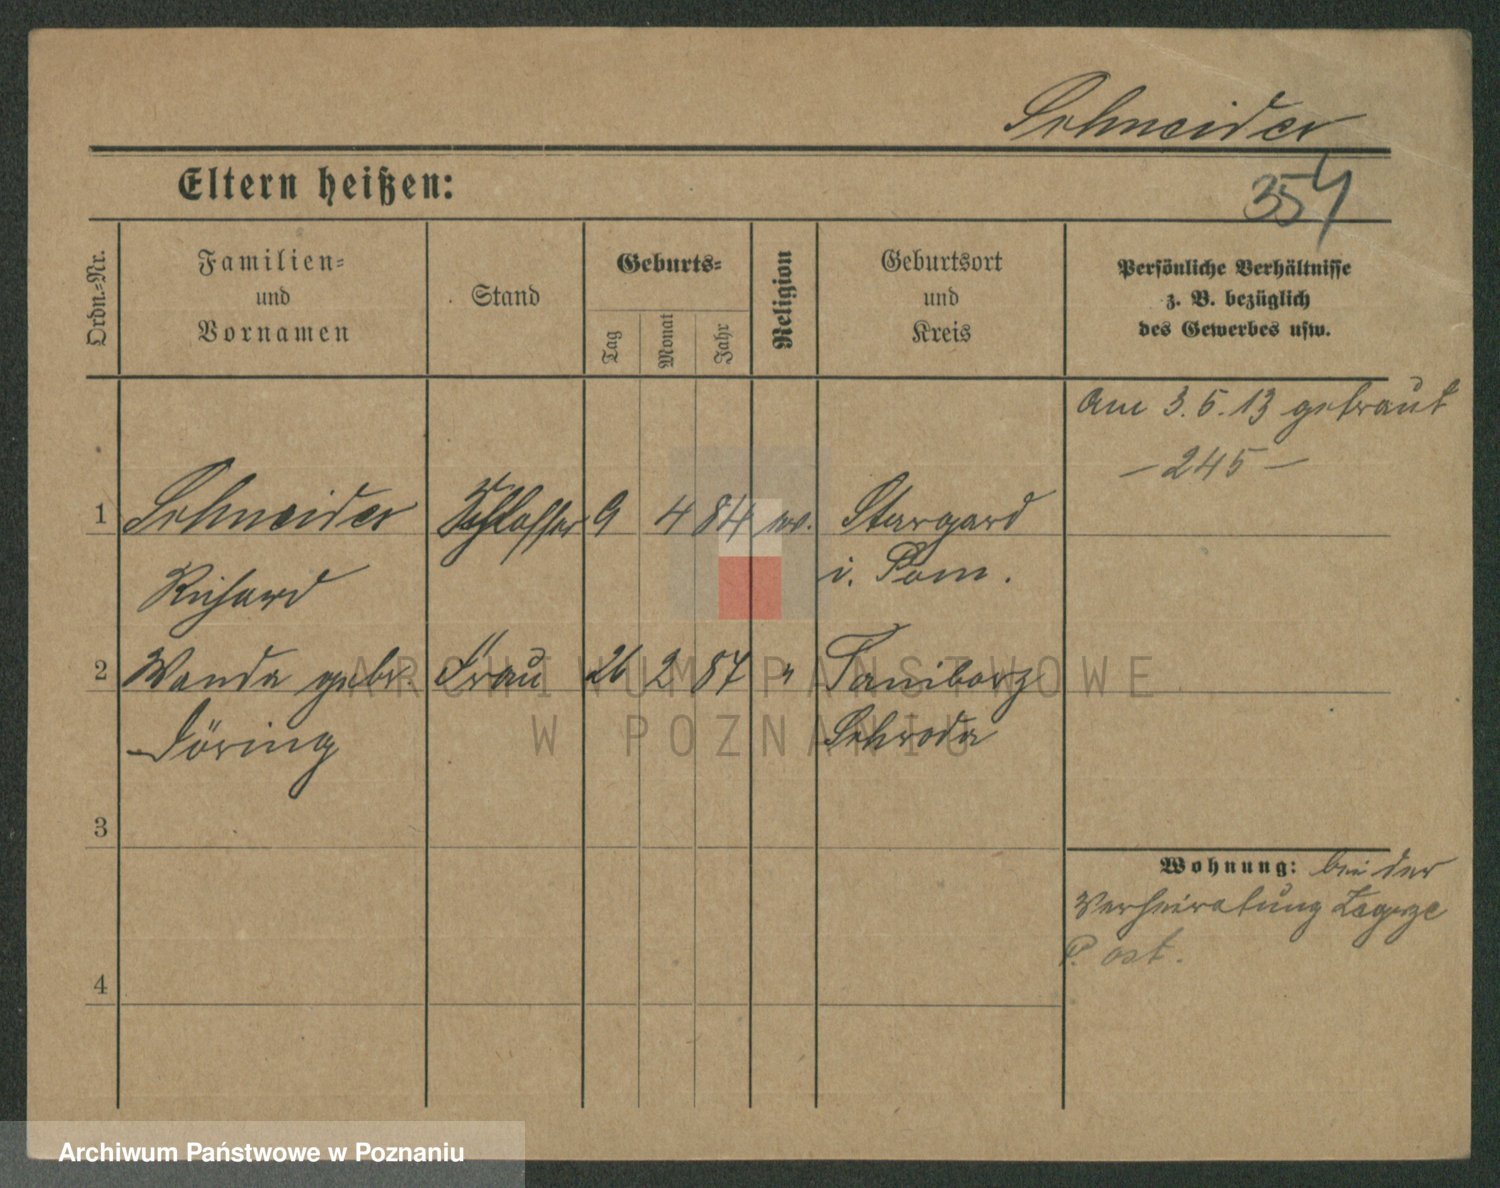 Schneider
Eltern heißen:
354
Ordn.-Nr.
Familien-
und
Vornamen
Stand
Geburts-
Tag
Monat
Jahr
Religion
Geburtsort
und
Kreis
Persönliche Verhältnisse
z. B. bezüglich
des Gewerbes usw.
Am 3.5.13 getraut
- 245 -
1 Schneider Schlosser 9 4 84 ev. Stargard
Richard i. Pom.
2 Wanda geb. Frau 26 2 87 " Taniborz
Döring Schroda
3
Wohnung: bei der
Verheiratung
P. ost.
4
ARCHIWUM PAŃSTWOWE
W POZNANIU
Archiwum Państwowe w Poznaniu